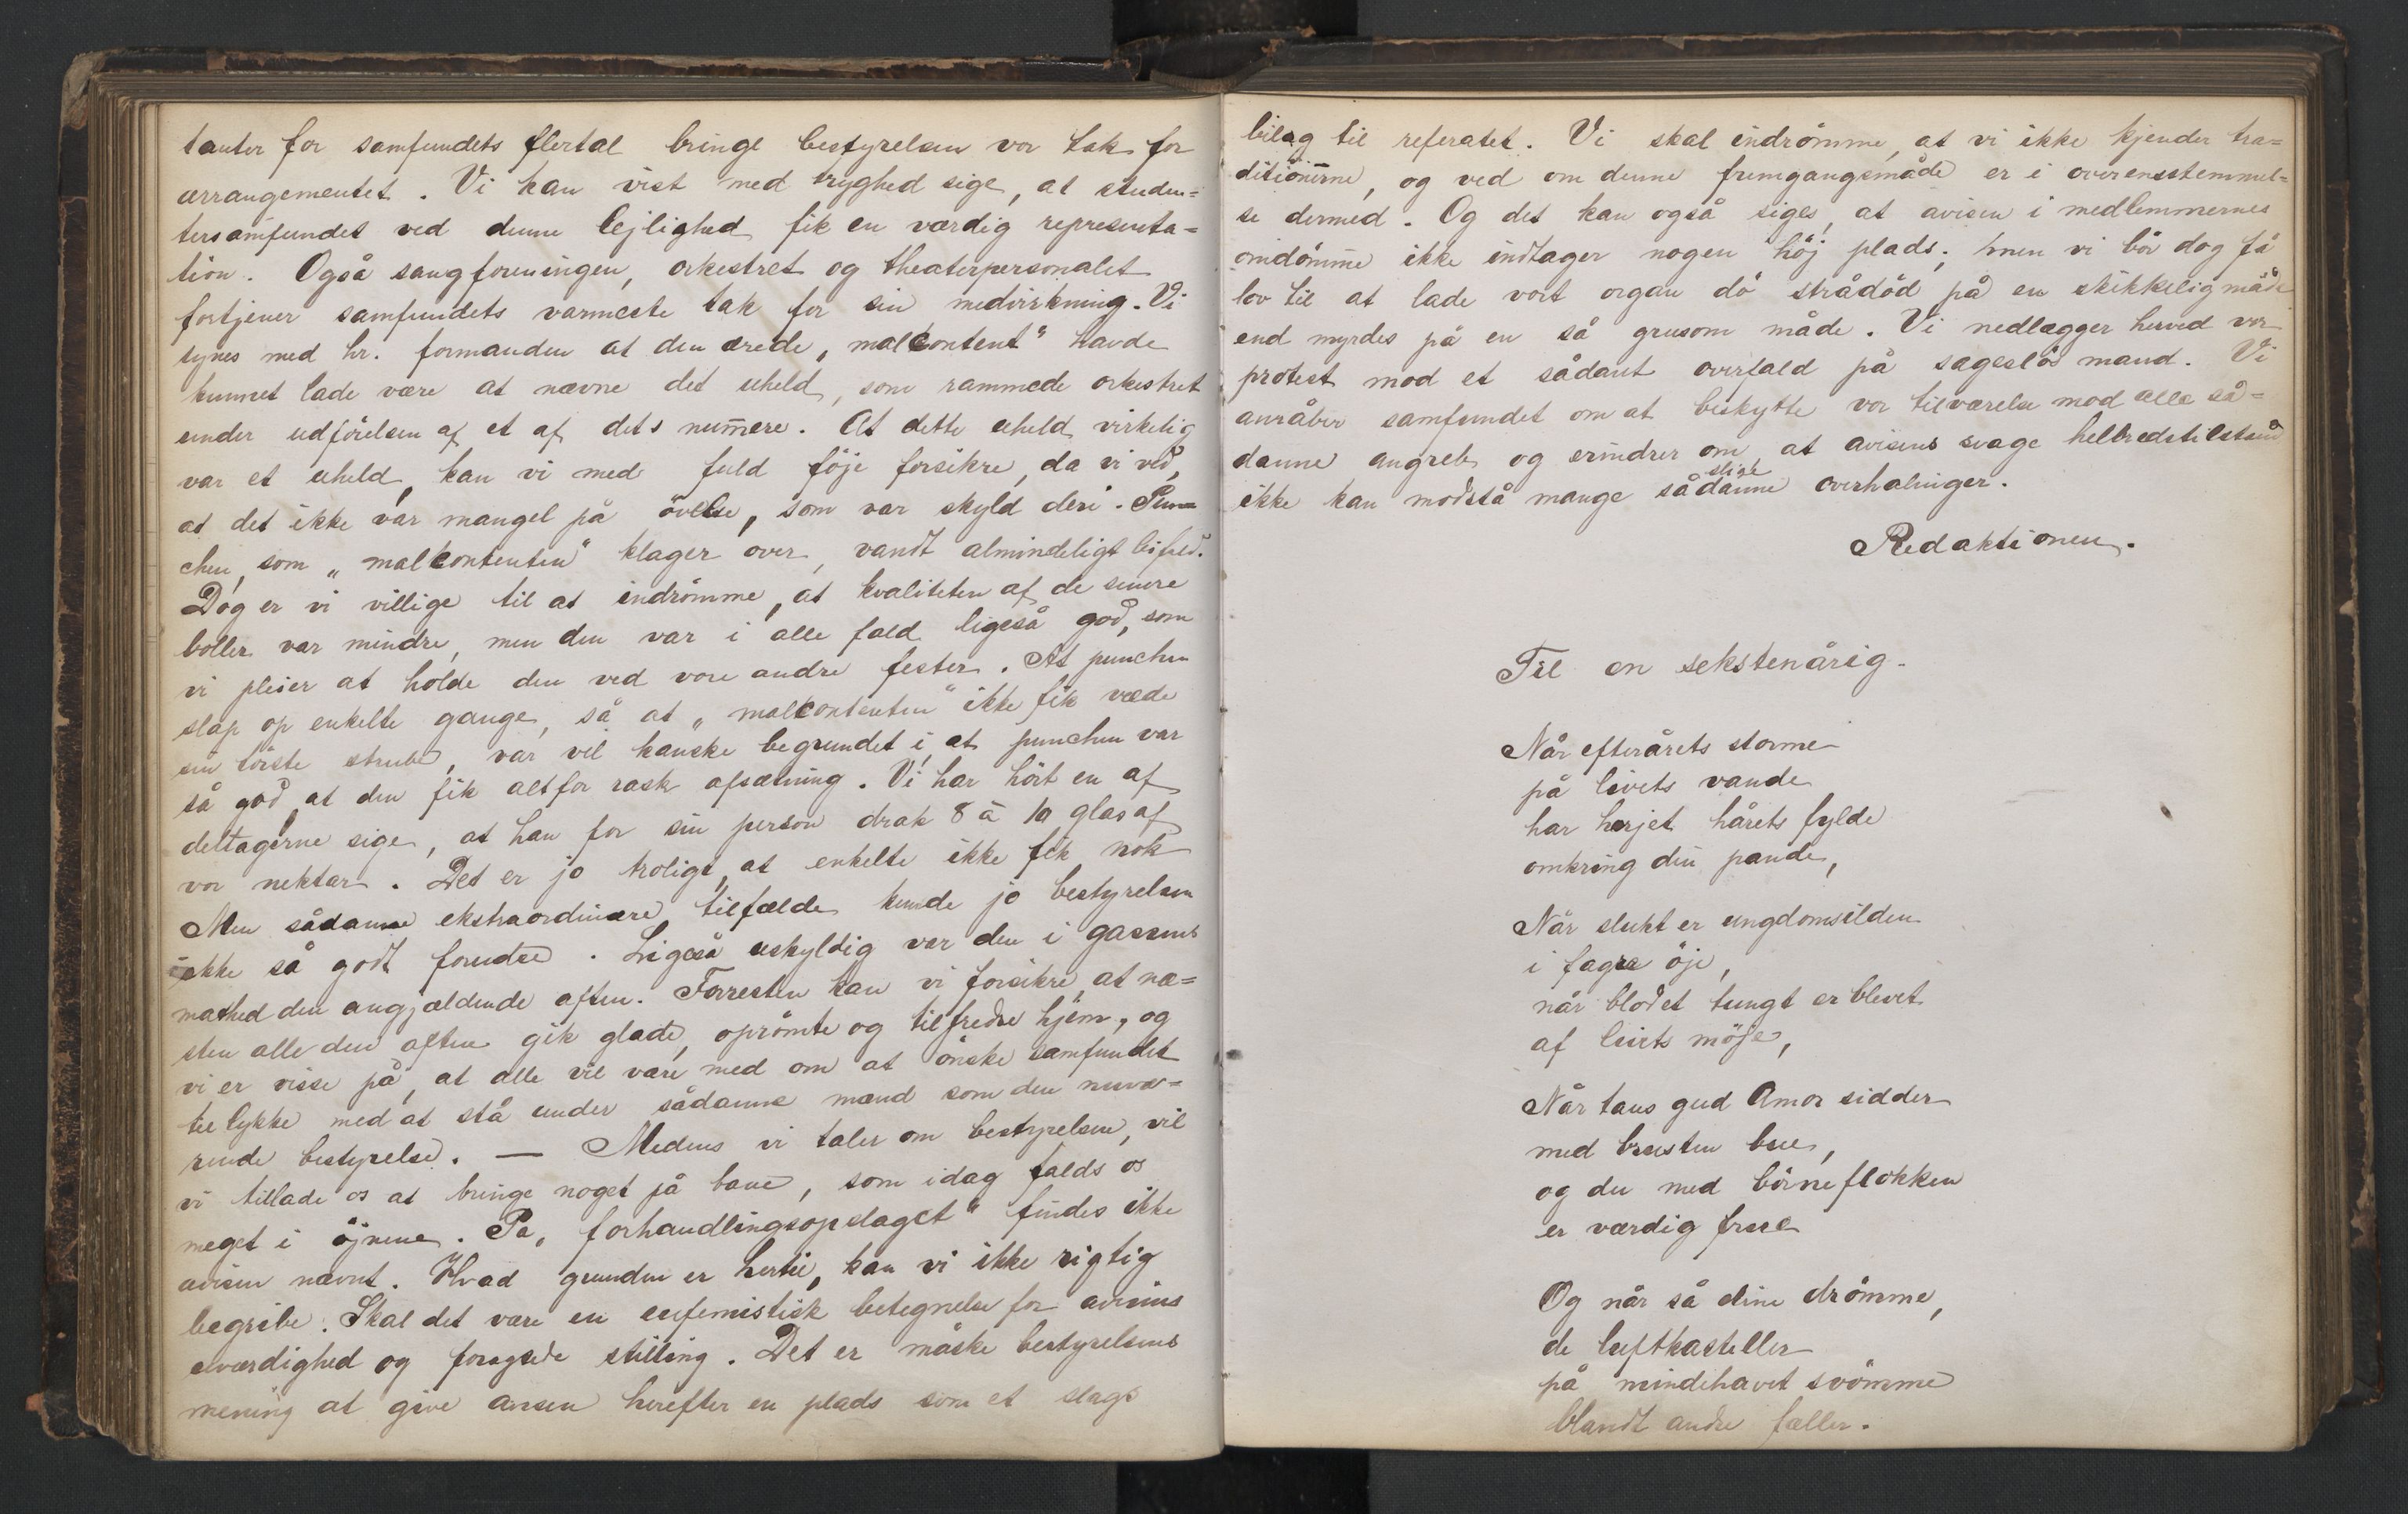 tanter for samfundets flertal bringe bestyrelsen vor tak for
arrangementet. Vi kan vist med tryghed sige, at studen=
tersamfundet ved denne lejlighed fik en værdig representa=
tion. Også sangforeningen, orkestret og theaterpersonalet
fortjener samfundets varmeste tak for sin medvirkning. Vi
synes med hr. formanden at den ærede „malkontent“ havde
kunnet lade være at nævne det uheld, som rammede orkestret
under udförelsen af et af dets numere. At dette uheld virkelig
var et uheld, kan vi med fuld föje forsikre, da vi ved,
at det ikke var mangel på övelse, som var skyld deri. Pun=
chen, som „malkontenten“ klager over, vandt almindeligt bifald.
Dog er vi villige til at indrömme, at kvaliteten af de senere
boller var mindre, men den var i alle fald ligeså god, som
vi pleier at holde den ved vore andre fester. At punchen
slap op enkelte gange, så at „malkontenten“ ikke fik væde
sin törste strube, var vel kanske begrundet i, at punchen var
så god at den fik altfor rask afsætning. Vi har hört en af
deltagerne sige, at han for sin person drak 8 à 10 glas af
vor nektar. Det er jo troligt, at enkelte ikke fik nok
Men sådanne ekstraordinære tilfælde kunde jo bestyrelsen
ikke så godt forudse. Ligeså uskyldig var den i gassens
mathed den angjældende aften. Forresten kan vi forsikre, at næ=
sten alle den aften gik glade, oprömte og tilfredse hjem, og
vi er visse på, at alle vil være med om at önske samfundet
til lykke med at stå under sådanne mænd som den nuvæ=
rende bestyrelse. — Medens vi taler om bestyrelsen, vil
vi tillade os at bringe noget på bane, som idag faldt os
meget i öjnene. På „forhandlingsopslaget“ findes ikke
avisen nævnt. Hvad grunden er hertil, kan vi ikke rigtig
begribe. Skal det være en eufemistisk betegnelse for avisens
uværdighed og foragtede stilling. Det er måske bestyrelsens
mening at give avisen herefter en plads som et slags
bilag til referatet. Vi skal indrömme, at vi ikke kjender tra=
ditionerne, og ved om denne fremgangsmåde er i overensstemmel=
se dermed. Og det kan også siges, at avisen i medlemmernes
omdömme ikke indtager nogen höj plads; men vi bör dog få
lov til at lade vort organ dö strådöd på en skikkelig måde
end myrdes på en så grusom måde. Vi nedlægger herved vor
protest mod et sådant overfald på sageslös mand. Vi
anråber samfundet om at beskytte vor tilværelse mod alle så=
danne angreb og erindrer om, at avisens svage helbredstilstand
ikke kan modstå mange sådanne slige overhalninger.
Redaktionen.
Til en sekstenårig.
Når efterårets storme
på livets vande
har herjet hårets fylde
omkring din pande,
Når slukt er ungdomsilden
i fagre öje,
når blodet tungt er blevet
af livets möje,
Når taus gud Amor sidder
med brusten bue,
og du med börneflokken
er værdig frue
Og når så dine drömme,
de luftkasteller
på mindehavet svömme
blandt andre fæller.